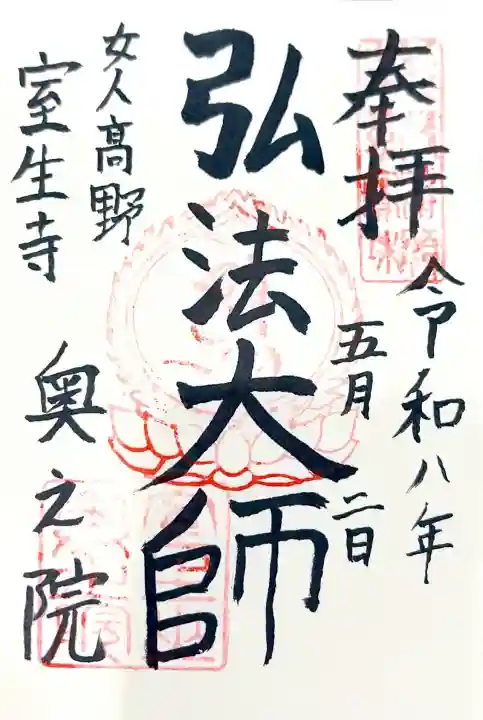 奉拝
令和八年
五月二日
弘法大師
女人高野
室生寺 奥之院